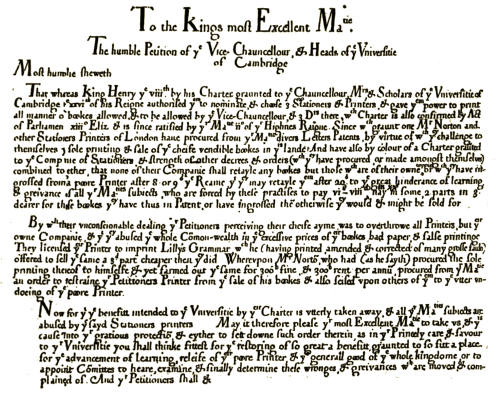 To the Kings most Excellent Ma:tie
The humble Petition of ye Vice-Chauncellour, & Heads of ye Vniversitie
of Cambridge
Most humblie sheweth
That whereas King Henry ye viijth by his Charter graunted to ye Chauncellour, Mrs & Scholars of ye Vniversitie of
Cambridge in xxvi of his Reigne authorised ym to nominate, & chuse 3 Stationers & Printers, & gave ym power to print
all manner of bookes allowed, & to be allowed by ye Vice-Chauncellour, & 3 Drs there, wch Charter is also confirmed by Act
of Parliament xiijth Eliz. & is since ratified by yr Maties in ye of yr Highnes Raigne. Since wch graunt one Mr Norton and
other Stationers Printers of London have procured from yr Matie divers Letters Patents, by virtue of wch they challenge to
themselves ye sole printing & sale of ye cheife vendible bookes in ye lande: And have also by colour of a Charter graunted
to ye Companie of Stationers, & strength of other decrees & orders (wch they have procured or made amongst themselves)
combined together, that none of their Companie shall retayle any bookes but those wch are of their owne, or wch they have in-
grossed from a poore Printer after 8 or 9s ye Reame yt yn may retayle ym after 20s to ye great hinderance of learning,
& greivance of all yr Maties subjects who are forced by these practises to pay vi- viij may in some 2 parts in 3
dearer for those bookes yn they have thus in Patent, or have ingrossed then otherwise they would & might be sold for.
By wch their vnconsionable dealing yr Petitioners perceiving their cheife ayme was to overthrowe all Printers, but of
owne Companie, & yt they abused ye whole Comon-wealth in excessive prices of ym bookes, bad paper, & false printinge
They licensed ye Printer to imprint Lillys Grammar, wch he (having printed amended & corrected of many grosse faults)
offered to sell ye same a 3d part cheaper then they did Wherevpon Mr Norton, who had (as he sayth) procured the sole
printing thereof to himselfe & yet farmed out ye same for 300li fine, & 300li rent per annu, procured from yr Matie
an order to restraine yr Petitioners Printer from ye sale of his bookes & also seised vpon others of ym to ye vtter vn-
doeing of ye poore Printer.
Now for yt ye benefit intended to ye Vniversitie by yr Charter is vtterly taken away, & all yr Maties subjects are
abused by ye sayd Stationers printers May it therefore please yr most Excellent Matie to take vs & ye
cause into yr gratious protection, & eyther to sett downe such order therein as in yr Princely care & favour
to ye Vniversitie you shall thinke fittest for ye restoring of so great a benefitt graunted to so fitt a place,
for ye advancement of learning, releife of ye poore Printer, & ye generall good of ye whole kingdome or to
appoint Comittes to heare, examine, & finally determine these wronges, & greivances wch are moved & com-
plained of. And ye Petitioners shall &